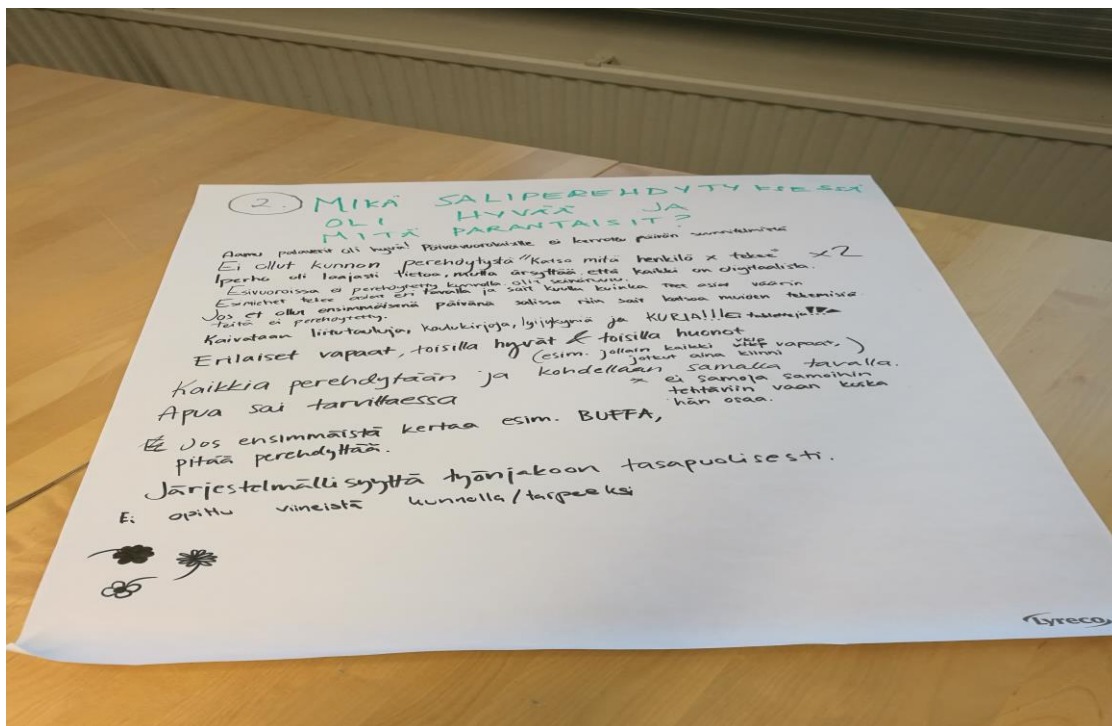 2. MIKÄ SALIPEREHDYTYKSESSÄ
OLI HYVÄÄ JA
MITÄ PARANTAISIT?
Aamu palaverit oli hyviä! Päivävuorolaisille ei kerrota päivän suunnitelmista
Ei ollut kunnon perehdytystä "Katso mitä henkilö x tekee" x2
Iperho oli laajasti tietoa, mutta ärsyttää, että kaikki on digitaalista.
Esivuoroissa ei perehdytetty kunnolla olit
Esimiehet tekee asiat eri tavalla ja sait kuulla kuinka teet asiat väärin
Jos et ollut ensimmäisenä päivänä salissa niin sait katsoa muiden tekemisiä
teitä ei perehdytetty.
Kaivataan liitutauluja, koulukirjoja, lyijykyniä ja KURIA!!!
Erilaiset vapaat, toisilla hyvät & toisilla huonot
(esim. jollain kaikki vkp vapaat,
jotkut aina kiinni)
Kaikkia perehdytään ja kohdellaan samalla tavalla.
x ei samoja samoihin
tehtäviin vaan koska
hän osaa.
Apua sai tarvittaessa
Jos ensimmäistä kertaa esim. BUFFA,
pitää perehdyttää.
Järjestelmällisyyttä työnjakoon tasapuolisesti.
Ei opittu viineistä kunnolla/tarpeeksi
Lyreco